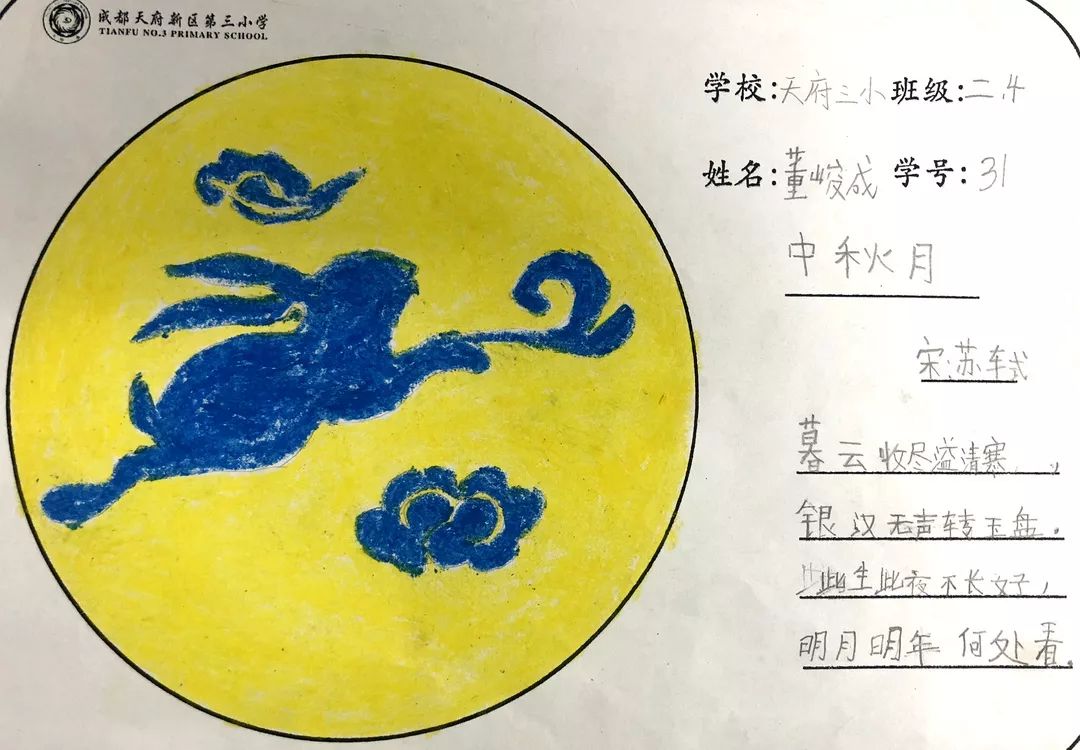 成都天府新区第三小学
TIANFU NO.3 PRIMARY SCHOOL
学校:天府三小 班级:二.4
姓名:董峻成 学号:31
中秋月
宋:苏轼
暮云收尽溢清寒,
银汉无声转玉盘.
此生此夜不长好,
明月明年何处看.